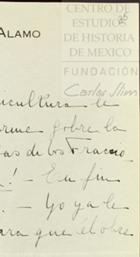 ALAMO
CENTRO DE
ESTUDIOS
DE HISTORIA
DE MEXICO
FUNDACIÓN
Carlos Slim
icultura le
orme sobre la
as de los Tracto
! — En fin
— Yo ya le
ara que él obre